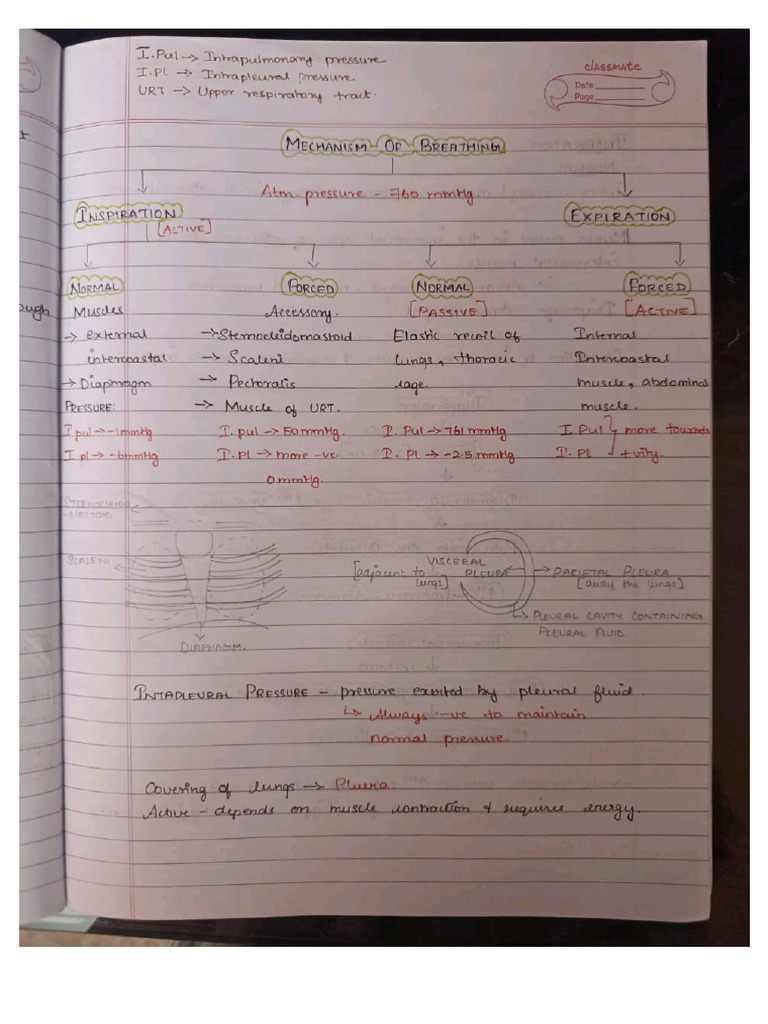 I. Pul → Intrapulmonary pressure
I. PL → Intrapleural pressure
URT → Upper respiratory tract.
classmate
Date
Page
MECHANISM OF BREATHING
Atm. pressure - 760 mmHg
INSPIRATION
[ACTIVE]
EXPIRATION
NORMAL
FORCED
NORMAL
FORCED
Muscles
→ external
intercoastal
→ Diaphragm
PRESSURE:
I pul → -1mmHg
I pl → -6mmHg
Accessory.
→ Sternocleidomastoid
→ Scaleni
→ Pectoralis
→ Muscle of URT.
I. pul → 50 mmHg.
I. PL → more -ve
0 mmHg.
[PASSIVE]
Elastic recoil of
lungs, thoracic
cage.
I. Pul → 761 mmHg
I. Pl → -2.5 mmHg
[ACTIVE]
Internal
Intercoastal
muscle, abdominal
muscle.
I. Pul } more towards
I. PL } +vity.
STERNOCLEIDO
-MASTOID
SCALENI
DIAPHAMM.
VISCERAL
PLEURA
[adjacent to
lungs]
PARIETAL PLEURA
[away the lungs]
PLEURAL CAVITY CONTAINING
PLEURAL FLUID.
INTAPLEURAL PRESSURE - pressure exerted by pleural fluid
↳ Always -ve to maintain
normal pressure.
Covering of lungs → Pluera.
Active - depends on muscle contraction & requires energy.